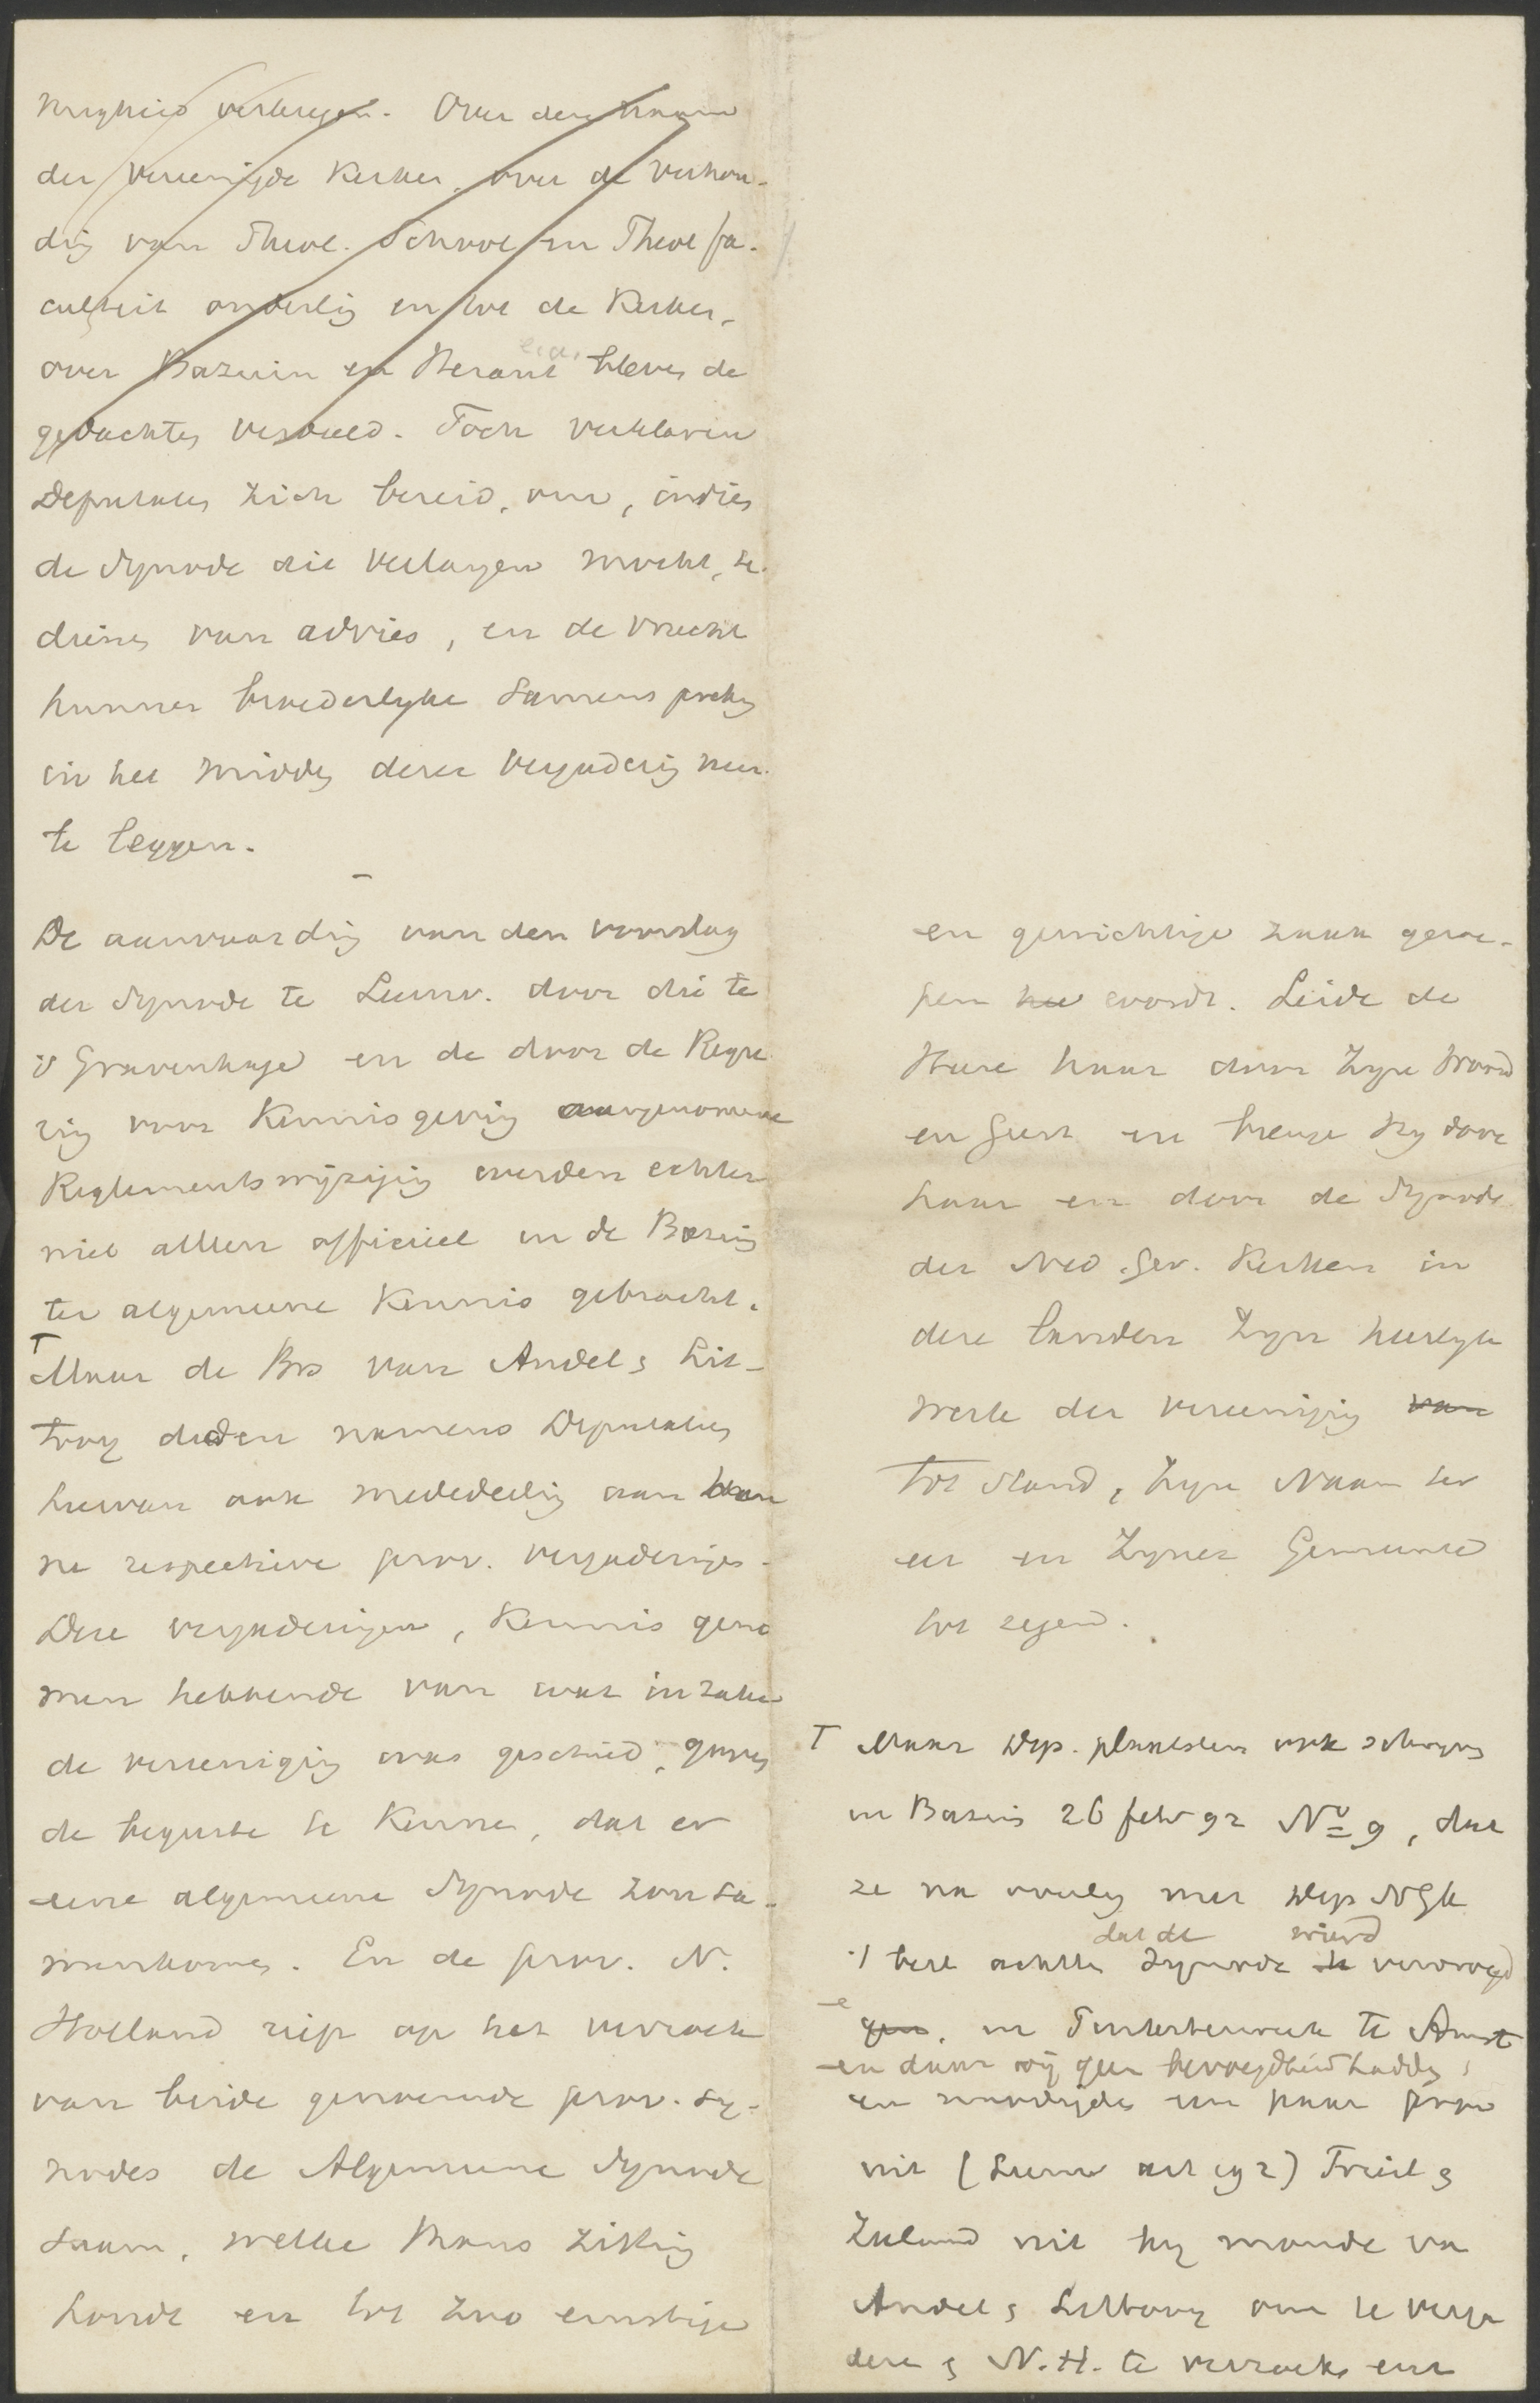 verkregen. Over den naam
der vereenigde Kerken, over de verhou-
dig van Theol. School en Theol fa-
culteit onderlig en tot de Kerken,
over Bazuin en Heraut bleven de
gedachten verdeeld. Toch verklaren
Deputaten zich bereid, om, indien
de Synode dit verlangen mocht, te
dienen van advies, en de vrucht
hunner broederlyke samenspreking
in het midden dezer vergaderig neer
te leggen.
De aanvaardig van den voorslag
der Synode te Leeuw. door die te
's Gravenhage en de door de Rege
rig voor Kennisgevig aangenomene
Reglementswijzigig werden echter
niet alleen officieel in de Bazuin
ter algemeene Kennis gebracht.
T
Maar de Brs van Andel & Lit-
tooy deden namens Deputaten
hiervan ook mededeelig aan hun
ne respectieve prov. vergaderingen.
Deze vergaderingen, Kennis geno
men hebbende van wat in zake
de vereeniging was geschied, gaven
de begeerte te Kennen, dat er
eene algemeene Synode zou sa-
menkomen. En de prov. N.
Holland riep op het verzoek
van beide genoemde prov. sy-
nodes de Algemeene Synode
saam, welke thans zitting
houdt en tot zoo ernstige
en gewichtige zaak geroe-
pen wordt. Leide de
Heere haar door Zyn Woord
en Geest en brenge Hy door
haar en door de Synode
der Ned. Ger. Kerken in
deze landen Zyn heerlyk
werk der vereeniging van
tot stand, Zyn Naam ter
eer en Zyner Gemeente
tot zegen.
T Maar Dep. plaatsten ook schryven
in Bazuin 26 febr 92 No 9, dat
ze na overleg met Dep NGK
't best achtten dat de Synode te wierd vervroegd
e
gen, in Pinksterweek te Amst
en daar wij geen bevoegdheid hadden,
en noodigde een paar prov
uit (Leeuw art 192) Friesl &
Zeeland uit by monde va
Andel & Littooy om te verga
deren & N.H. te verzoeken eene